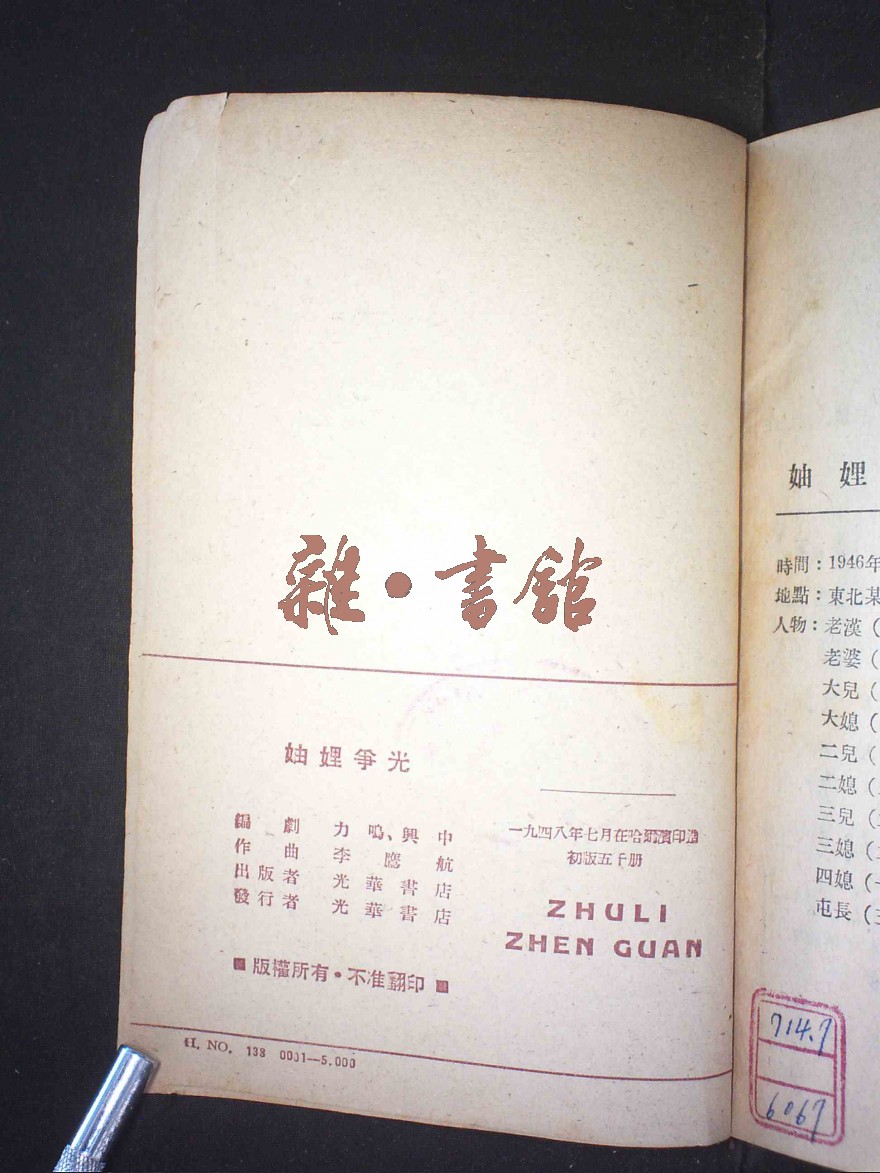 雜·書館
妯娌爭光
編劇 力鳴、興中
作曲 李鷹航
出版者 光華書店
發行者 光華書店
■ 版權所有·不准翻印 ■
一九四八年七月在哈爾濱印造
初版五千册
ZHULI
ZHEN GUAN
H. NO. 138 0001—5.000
妯娌
時間：1946年
地點：東北某
人物：老漢（
老婆（
大兒（
大媳（
二兒（
二媳（
三兒（
三媳（
四媳（
屯長（
714.7
6067